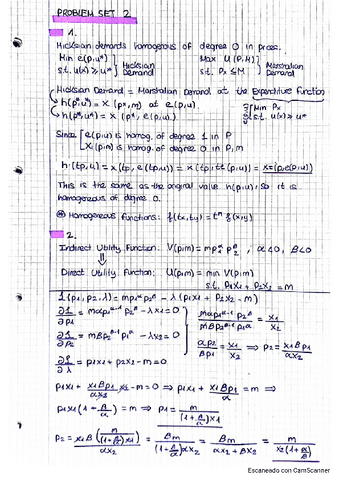 PROBLEM SET 2
1.
Hicksian demands homogenous of degree 0 in prices.
Min e(p,u) } Hicksian Max U(P,M) } Marshallian
s.t. u(x) ≥ u* } Demand s.t. Px ≤ M } Demand
Hicksian Demand = Marshallian Demand at the Expenditure Function
h(p*,u*) = x(p*,m) at e(p,u) Min Px
h(p*,u*) = x(p*, e(p,u)) s.t. u(x) ≥ u*
Since [ e(p,u) is homog. of degree 1 in P
x(p,m) is homog. of degree 0 in PM
h(tp,u) = x(tp, e(tp,u)) = x(tp, te(p,u)) = x(p,e(p,u))
This is the same as the original value h(p,u), so it is
homogeneous of degree 0.
Homogeneous functions: f(tx,ty) = tⁿ f(x,y)
2.
Indirect Utility Function: V(p,m) = mp₁^α p₂^β, α<0, β<0
⇓
Direct Utility Function: U(p,m) = min V(p,m)
s.t. p₁x₁ + p₂x₂ = m
L(p₁,p₂,λ) = mp₁^α p₂^β − λ(p₁x₁ + p₂x₂ − m)
∂L/∂p₁ = mαp₁^(α−1) p₂^β − λx₁ = 0
∂L/∂p₂ = mβp₂^(β−1) p₁^α − λx₂ = 0
∂L/∂λ = p₁x₁ + p₂x₂ − m = 0
mαp₁^(α−1) p₂^β / mβp₂^(β−1) p₁^α = x₁/x₂
αp₂/βp₁ = x₁/x₂ ⇒ p₂ = x₁βp₁/αx₂
p₁x₁ + (x₁βp₁/αx₂) x₂ − m = 0 ⇒ p₁x₁ + x₁βp₁/α = m ⇒
p₁x₁(1 + β/α) = m ⇒ p₁ = m/((1+β/α)x₁)
p₂ = x₁β(m/((1+β/α)x₁))/αx₂ = βm/((1+β/α)αx₂) = βm/(αx₂+βx₂) = m/(x₂(1+α/β))
Escaneado con CamScanner